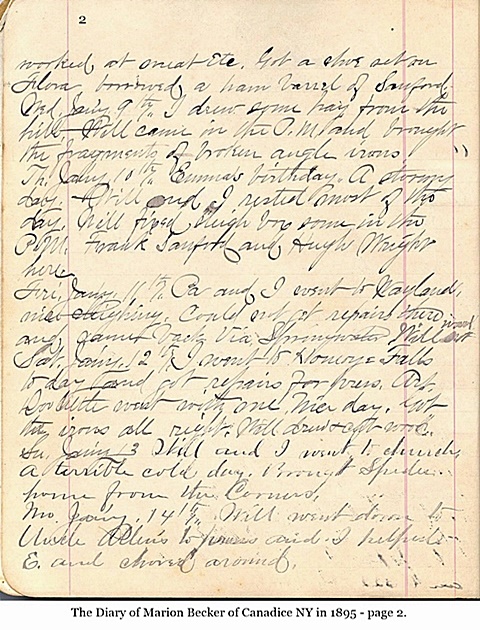 2
worked at meat Etc. Got a shoe set on
Flora, borrowed a ham barrel of Sanford.
Wed, Jany 9th, I drew some hay from the
hill. Will came in the P.M. and brought
the fragments of broken angle irons,
Th. Jany 10th, Emmas birthday. A stormy
day. Will and I rested most of the
day. Will fixed sleigh box some in the
P.M. Frank Sanford and Hugh Wright
here.
Fri, Jany 11th, Pa and I went to Wayland,
nice sleighing. Could not get repairs there
and came back via Springwater Will
Sat, Jany. 12th, I went to Honeoye Falls
to day and got repairs for irons. Art
Doolittle went with me, Nice day. Got
the irons all right. Will drew cut wood.
Su, Jany 13 Will and I went to church,
a terrible cold day. Brought
home from the Corners.
Mo Jany, 14th, Will went down to
Uncle Allens to and I helped
E. and chored around.
The Diary of Marion Becker of Canadice NY in 1895 - page 2.